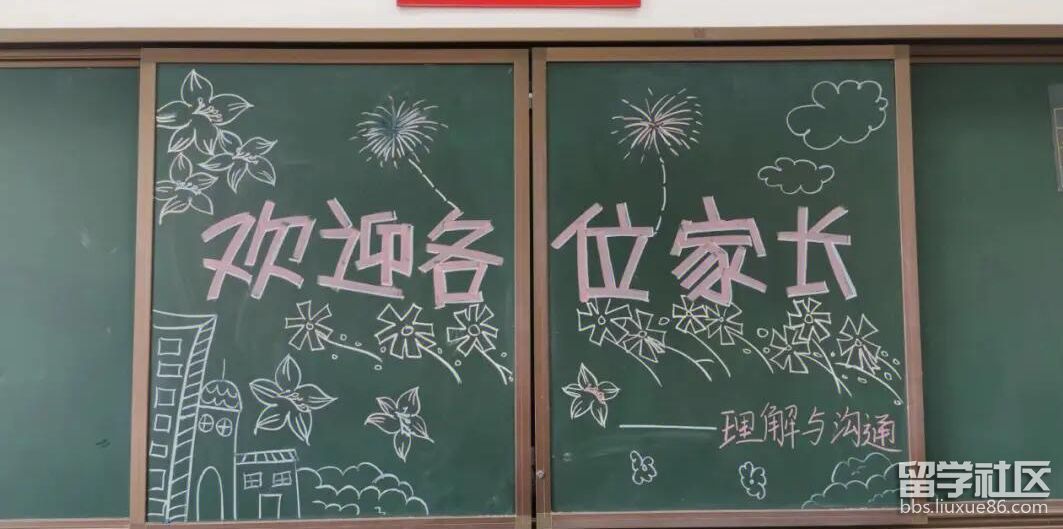 欢迎各位家长
——理解与沟通
留学社区
bbs.liuxue86.com